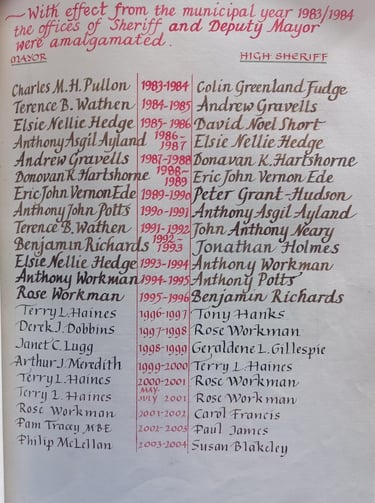 ~ With effect from the municipal year 1983/1984
the offices of Sheriff and Deputy Mayor
were amalgamated.
MAYOR HIGH SHERIFF
Charles M. H. Pullon 1983-1984 Colin Greenland Fudge
Terence B. Wathen 1984-1985 Andrew Gravells
Elsie Nellie Hedge 1985-1986 David Noel Short
Anthony Asgil Ayland 1986-1987 Elsie Nellie Hedge
Andrew Gravells 1987-1988 Donavan K. Hartshorne
Donovan K Hartshorne 1988-1989 Eric John Vernon Ede
Eric John Vernon Ede 1989-1990 Peter Grant-Hudson
Anthony John Potts 1990-1991 Anthony Asgil Ayland
Terence B. Wathen 1991-1992 John Anthony Neary
Benjamin Richards 1992-1993 Jonathan Holmes
Elsie Nellie Hedge 1993-1994 Anthony Workman
Anthony Workman 1994-1995 Anthony Potts
Rose Workman 1995-1996 Benjamin Richards
Terry L. Haines 1996-1997 Tony Hanks
Derek J. Dobbins 1997-1998 Rose Workman
Janet C. Lugg 1998-1999 Geraldene L. Gillespie
Arthur J. Meredith 1999-2000 Terry L Haines
Terry L Haines 2000-2001 Rose Workman
Terry L Haines MAY-JULY 2001 Rose Workman
Rose Workman 2001-2002 Carol Francis
Pam Tracey MBE 2002-2003 Paul James
Philip McLellan 2003-2004 Susan Blakeley